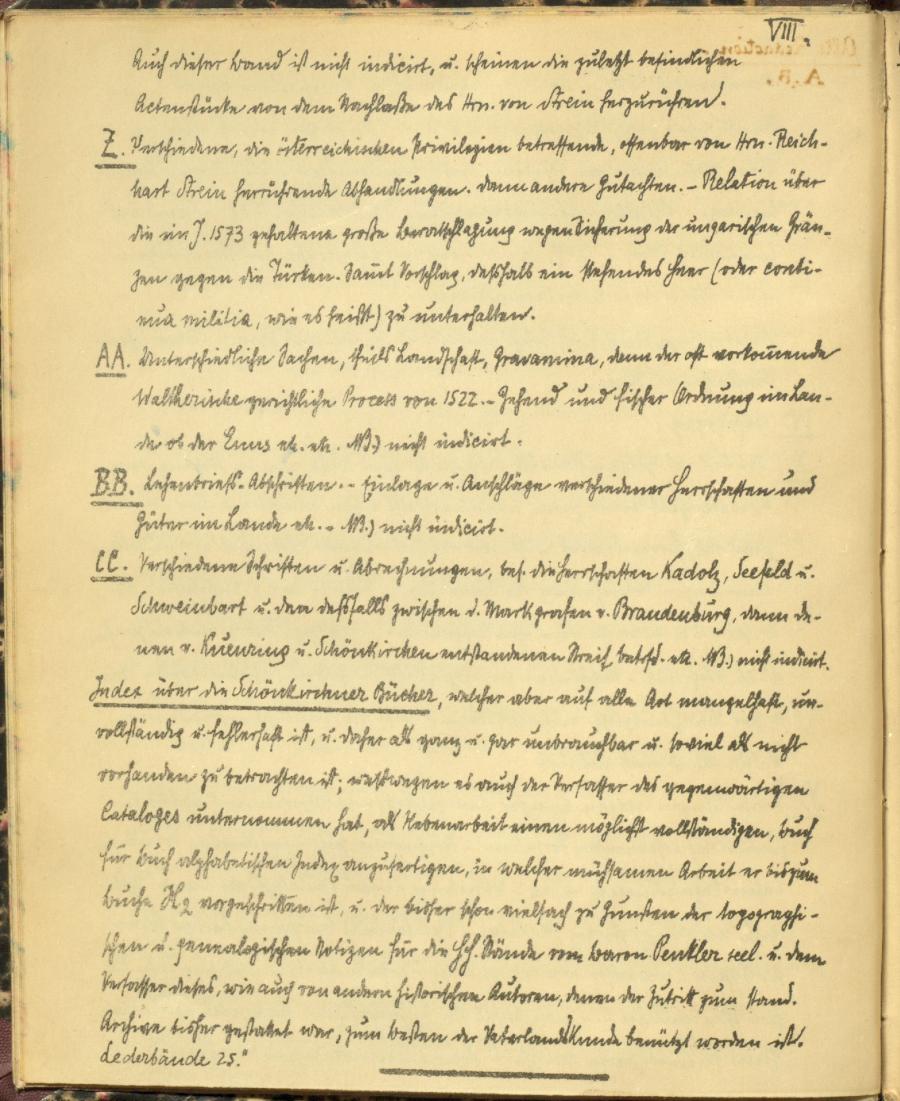 VIII.
Auch dieser Band ist nicht indicirt, u. scheinen die zuletzt befindlichen
Actenstücke von dem Nachlaße des Hrn. von Strein herzurühren.
Z. Verschiedene, die österreichischen Privilegien betreffende, offenbar von Hrn. Reich-
hart Strein herrührende Abhandlungen. dann andere Gutachten. - Relation über
die im J. 1573 gehaltene große Berathschlagung wegen Sicherung der ungarischen Grän-
zen gegen die Türken. Sam̄t Vorschlag, deßhalb ein stehendes Heer (oder conti-
nua militia, wie es heißt) zu unterhalten.
AA. Unterschiedliche Sachen, theils Landschaft, Gravamina, dann der oft vorkom̄ende
Waltherische gerichtliche Process von 1522. - Zehend und Fischer Ordnung im Lan-
de ob der Enns etc. etc. NB.) nicht indicirt.
BB. Lehenbriefs-Abschriften. - Einlage u. Anschläge verschiedener Herrschaften und
Güter im Lande etc. - NB.) nicht indicirt.
CC. Verschiedene Schriften u. Abrechnungen, bes. die Herrschaften Kadolz, Seefeld u.
Schweinbart u. den deßfalls zwischen d. Markgrafen v. Brandenburg, dann de-
nen v. Kuenring u. Schönkirchen entstandenen Streit betrfd. etc. NB.) nicht indicirt.
Index über die Schönkirchner Bücher, welcher aber auf alle Art mangelhaft, un-
vollständig u. fehlerhaft ist, u. daher als ganz u. gar unbrauchbar u. soviel als nicht
vorhanden zu betrachten ist; weßwegen es auch der Verfasser des gegenwärtigen
Cataloges unternommen hat, als Nebenarbeit einen möglichst vollständigen, Buch
für Buch alphabetischen Index anzufertigen, in welcher mühsamen Arbeit er bis zum
Buche H2 vorgeschritten ist, u. der bisher schon vielfach zu Gunsten der topographi-
schen u. genealogischen Notizen für die HH. Stände vom Baron Penkler seel. u. dem
Verfasser dieses, wie auch von andern historischen Autoren, denen der Zutritt zum ständ.
Archive bisher gestattet war, zum Besten der Vaterlandskunde benützt worden ist.
Lederbände 25."